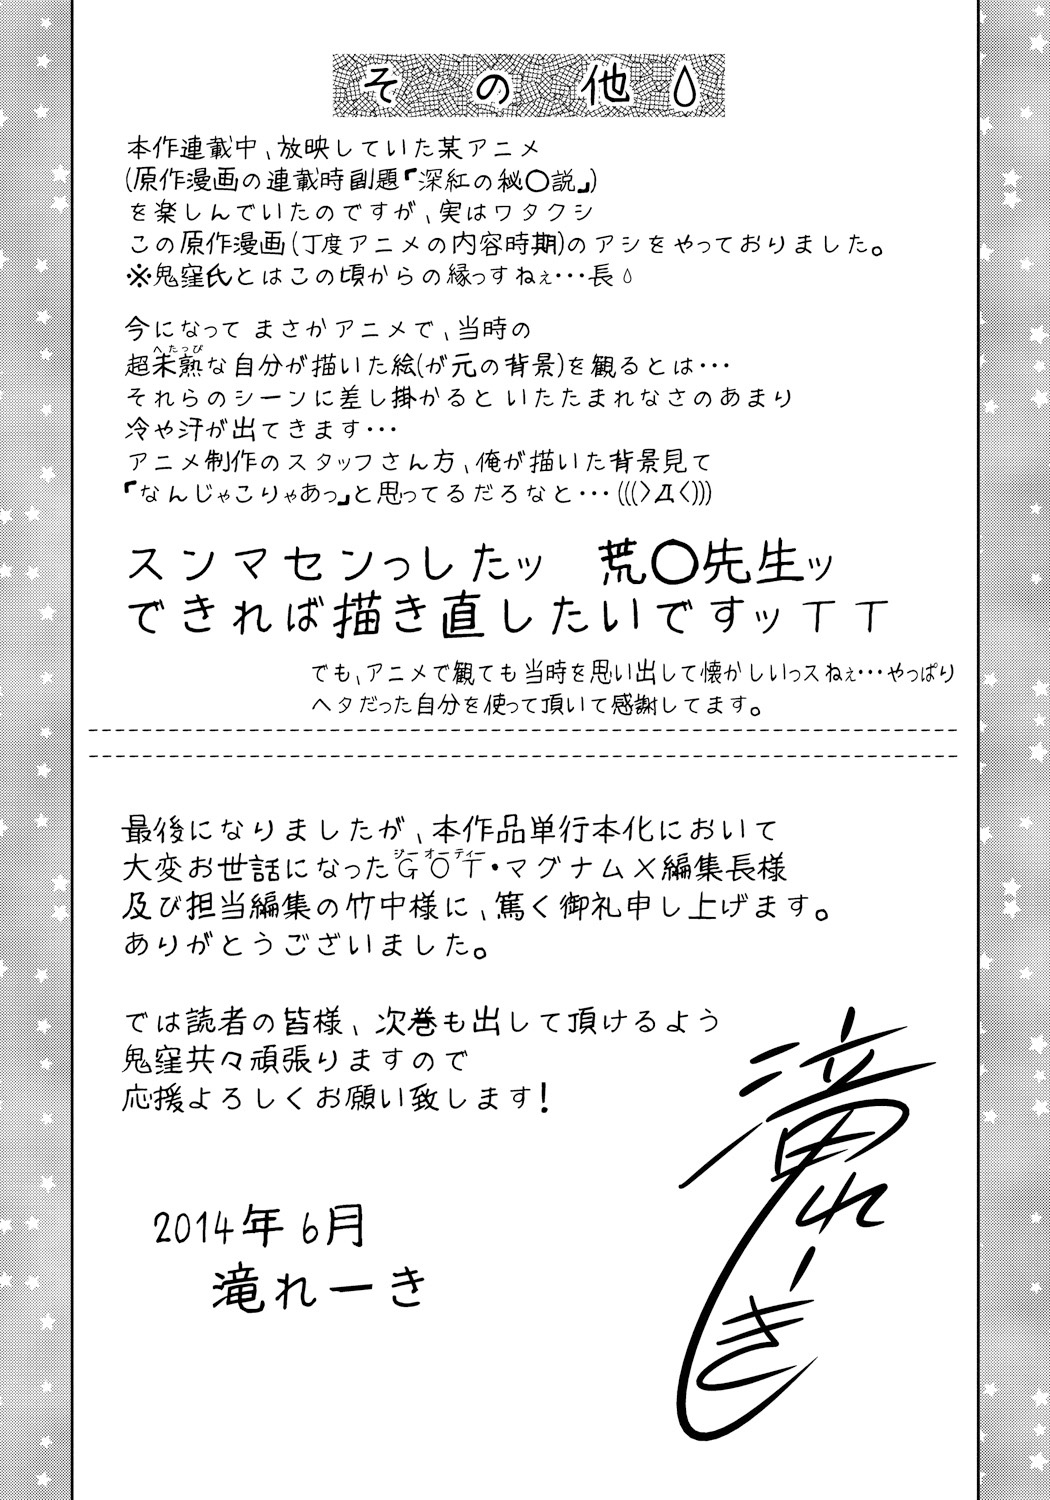 その他
本作連載中、放映していた某アニメ
(原作漫画の連載時副題『深紅の秘〇説』)
を楽しんでいたのですが、実はワタクシ
この原作漫画(丁度アニメの内容時期)のアシをやっておりました。
※鬼窪氏とはこの頃からの縁っすねぇ・・・長
今になって まさかアニメで、当時の
超未熟な自分が描いた絵(が元の背景)を観るとは・・・
へたっぴ
それらのシーンに差し掛かると いたたまれなさのあまり
冷や汗が出てきます・・・
アニメ制作のスタッフさん方、俺が描いた背景見て
『なんじゃこりゃあっ』と思ってるだろなと・・・(((>Д<)))
スンマセンっしたッ 荒〇先生ッ
できれば描き直したいですッTT
でも、アニメで観ても当時を思い出して懐かしいっスねぇ・・・やっぱり
ヘタだった自分を使って頂いて感謝してます。
最後になりましたが、本作品単行本化において
大変お世話になったGOT・マグナムX編集長様
ジーオーティー
及び担当編集の竹中様に、篤く御礼申し上げます。
ありがとうございました。
では読者の皆様、次巻も出して頂けるよう
鬼窪共々頑張りますので
応援よろしくお願い致します!
2014年6月
滝れーき
滝れーき